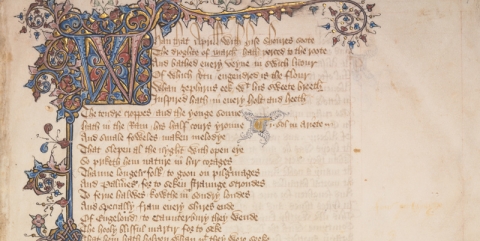 Whan that Aprill with hise shoures soote
The droghte of march hath perced to the roote
And bathed euery veyne in swich licour
Of which vertu engendred is the flour
Whan zephirus eek wt his sweete breeth
Inspired hath in euery holt and heeth
The tendre croppes and the yonge sonne
Hath in the Ram his half cours yronne in Ariete
And smale foweles maken melodye
That slepen al the nyght with open eye
So priketh hem nature in hir corages
Thanne longen folk to goon on pilgrimages
And Palmeres for to seken straunge strondes
To ferne halwes kowthe in sondry londes
And specially fram euery shires ende
Of Engelond to Caunterbury they wende
The holy blisful martir for to seke
That hem hath holpen whan þt they were seeke